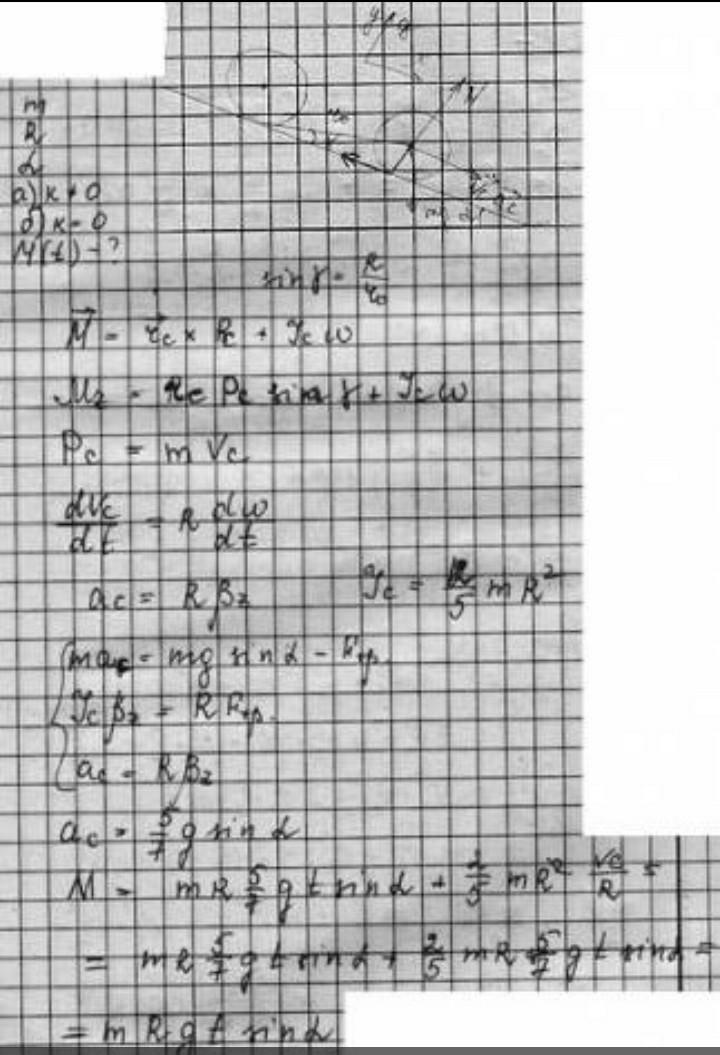 m
R
α
а) k ≠ 0
б) k = 0
M(t) - ?
y
N
sin γ = R / r₀
M⃗ = r⃗c × Pc + Jc ω
Mz = rc Pc sin γ + Jc ω
Pc = m Vc
dVc/dt = R dω/dt
ac = R βz    Jc = 2/5 m R²
mac = mg sin α - Fтр.
Jc βz = R Fтр.
ac = R βz
ac = 5/7 g sin α
M = m R 5/7 g t sin α + 2/5 m R² Vc/R =
= m R 5/7 g t sin α + 2/5 m R 5/7 g t sin α =
= m R g t sin α